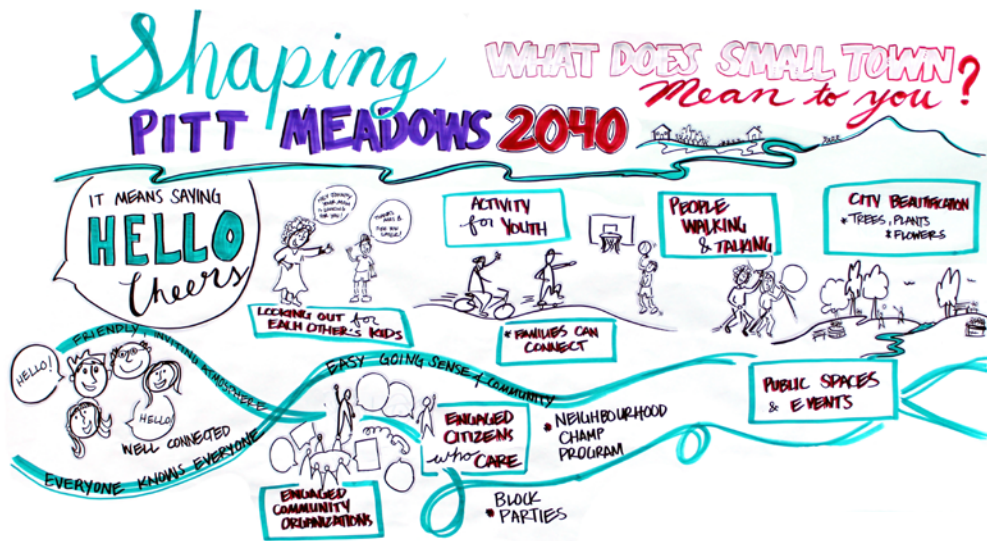 Shaping
PITT MEADOWS 2040
WHAT DOES SMALL TOWN
Mean to you?
IT MEANS SAYING
HELLO
Cheers
HEY JOHNNY
YOUR MOM
IS LOOKING
FOR YOU!
LOOKING OUT for
EACH OTHER'S KIDS
ACTIVITY
for YOUTH
* FAMILIES CAN
CONNECT
PEOPLE
WALKING
& TALKING
CITY BEAUTIFICATION
* TREES, PLANTS
& FLOWERS
FRIENDLY, INVITING ATMOSPHERE
HELLO!
HELLO!
WELL CONNECTED
EVERYONE KNOWS EVERYONE
EASY GOING SENSE of COMMUNITY
ENGAGED
CITIZENS
who CARE
* NEIGHBOURHOOD
CHAMP
PROGRAM
ENGAGED
COMMUNITY
ORGANIZATIONS
BLOCK
* PARTIES
PUBLIC SPACES
& EVENTS